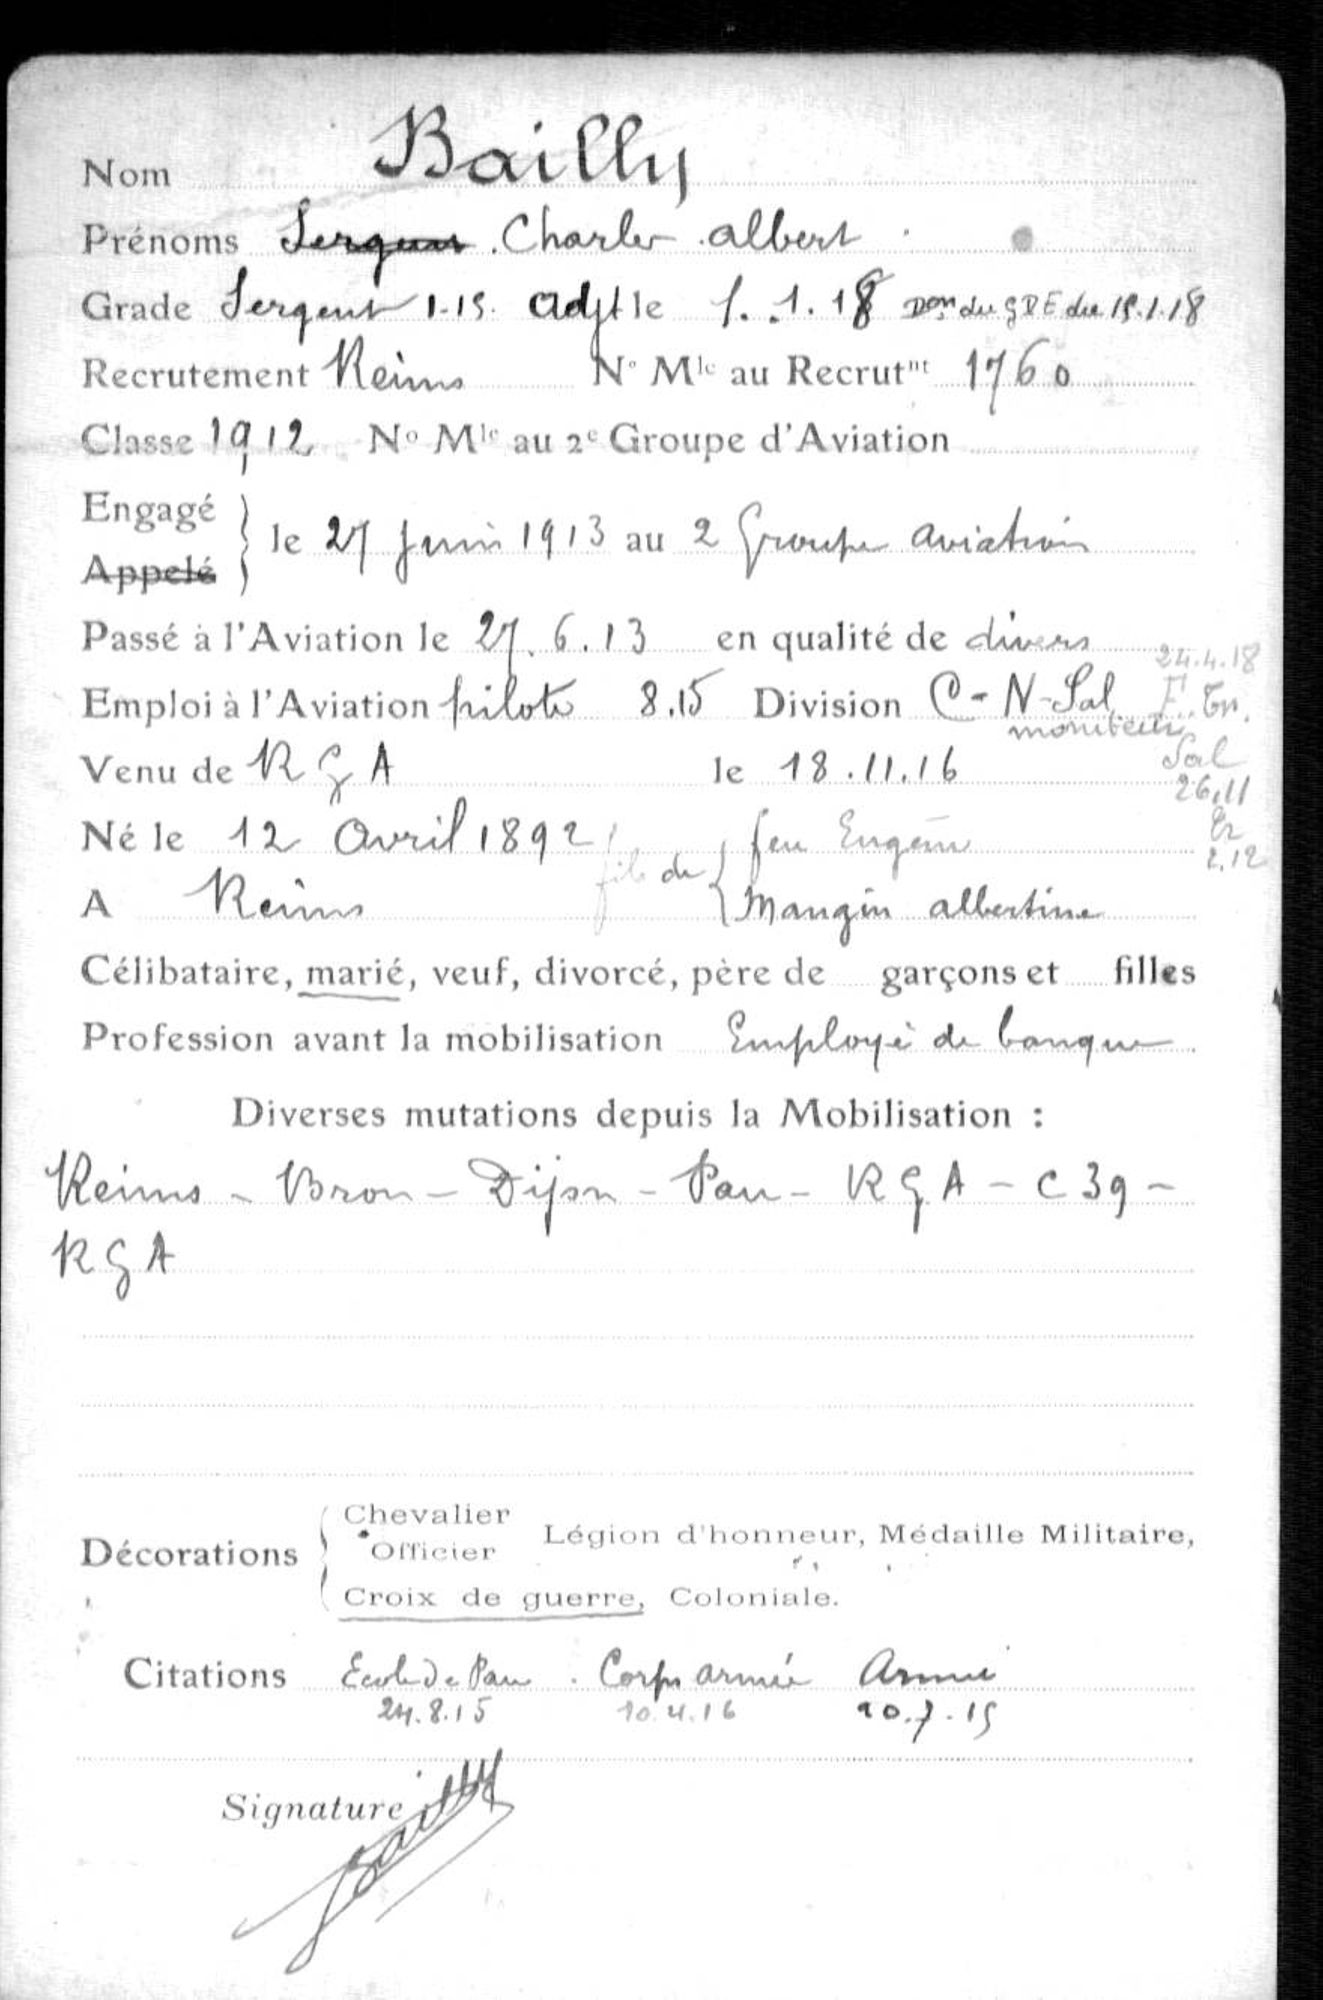 Nom Bailly
Prénoms Sergent Charles albert
Grade Sergent 1-15. adjt le 1.1.18 Don du GDE du 15.1.18
Recrutement Reims No Mle au Recrutnt 1760
Classe 1912 No Mle au 2e Groupe d'Aviation
Engagé
Appelé
le 27 Juin 1913 au 2 Groupe aviation
Passé à l'Aviation le 27.6.13 en qualité de divers
24.4.18
Emploi à l'Aviation pilote 8.15 Division C-N-Sal
moniteur
Venu de RGA le 18.11.16
Sal
26.11
Né le 12 Avril 1892 feu Eugène
2.12
fils de
A Reims Mangin albertine
Célibataire, marié, veuf, divorcé, père de garçons et filles
Profession avant la mobilisation Employé de banque
Diverses mutations depuis la Mobilisation :
Reims - Bron - Dijon - Pau - RGA - C 39 -
RGA
Chevalier
Officier Légion d'honneur, Médaille Militaire,
Décorations
Croix de guerre, Coloniale.
Citations Ecole de Pau . Corps armée Armée
24.8.15 10.4.16 20.7.15
Signature Bailly